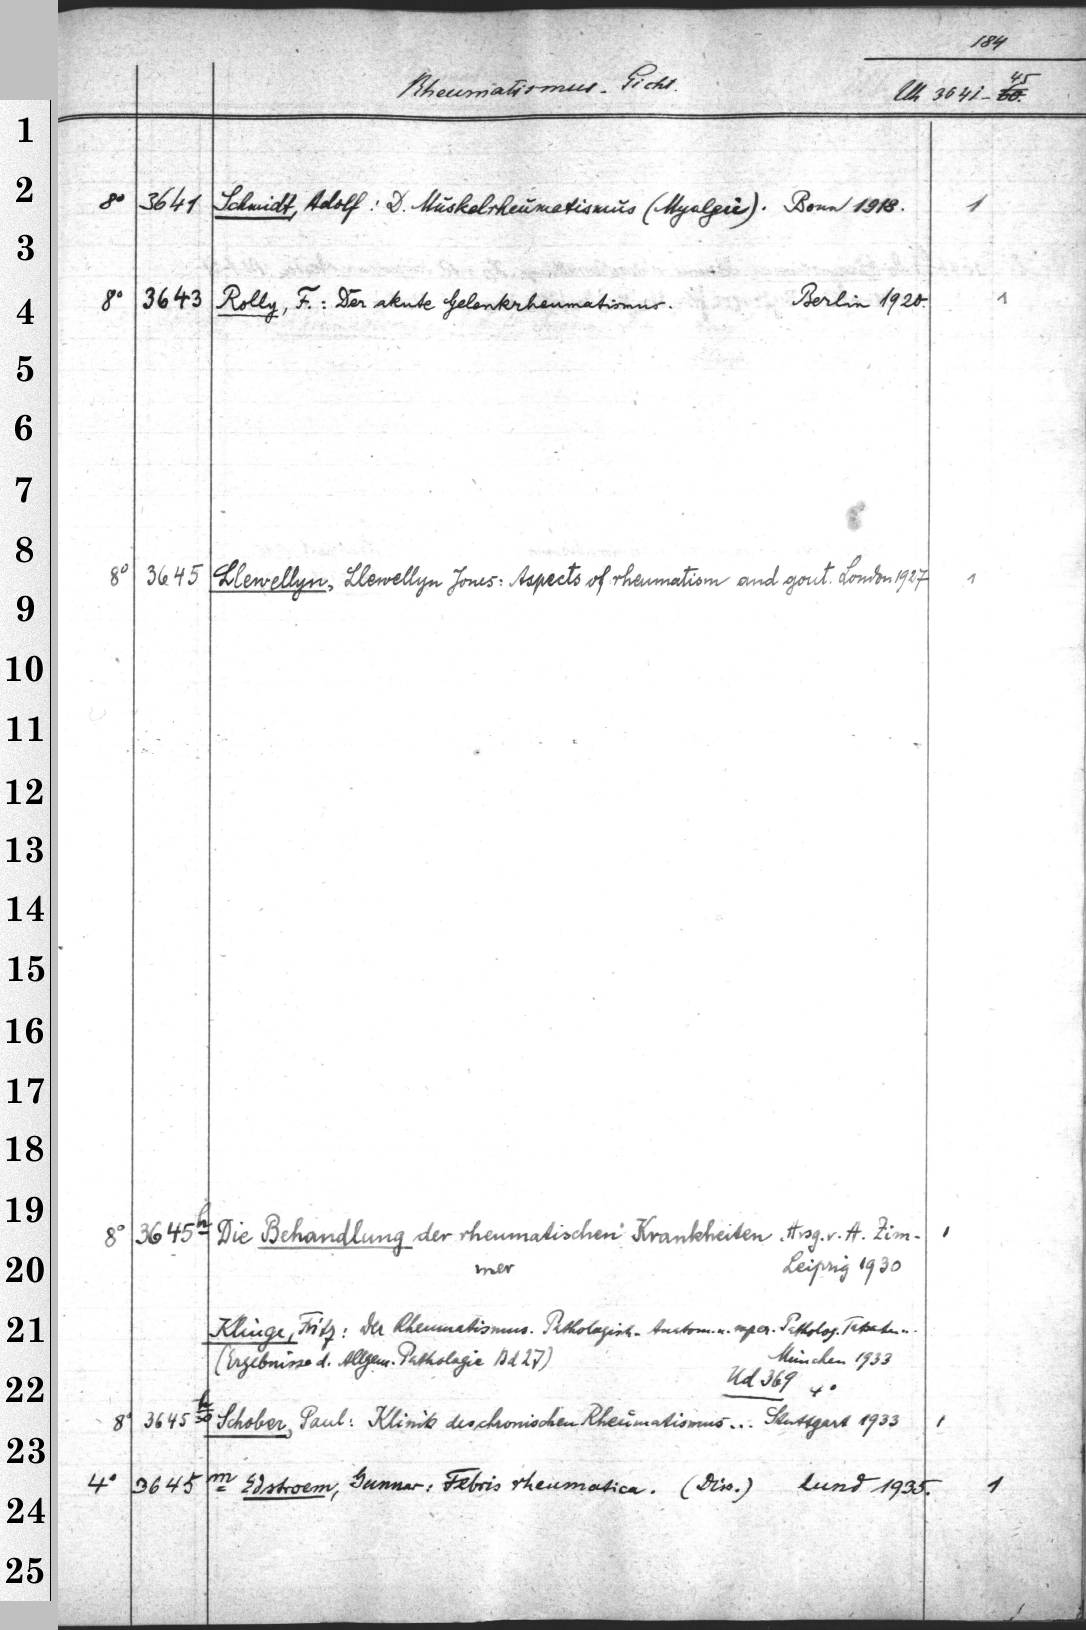 184
Rheumatismus. Gicht.
Uh 3641-60. 45
1
2
8° 3641 Schmidt, Adolf: D. Muskelrheumatismus (Myalgie). Bonn 1918. 1
3
8° 3643 Rolly, F.: Der akute Gelenkrheumatismus. Berlin 1920. 1
4
5
6
7
8
8° 3645 Llewellyn, Llewellyn Jones: Aspects of rheumatism and gout. London 1927 1
9
10
11
12
13
14
15
16
17
18
19
8° 3645 h Die Behandlung der rheumatischen Krankheiten. Hrsg. v. A. Zim-
20
mer Leipzig 1930 1
21
Klinge, Fritz: Der Rheumatismus. Pathologisch-Anatom. u. exper. Patholog.
(Ergebnisse d. Allgem. Pathologie Bd 27) München 1933
22
Ud 369 4°
8° 3645 h/50 Schober, Paul: Klinik des chronischen Rheumatismus... Stuttgart 1933 1
23
4° 3645 m Edstroem, Gunnar: Febris rheumatica. (Diss.) Lund 1935. 1
24
25